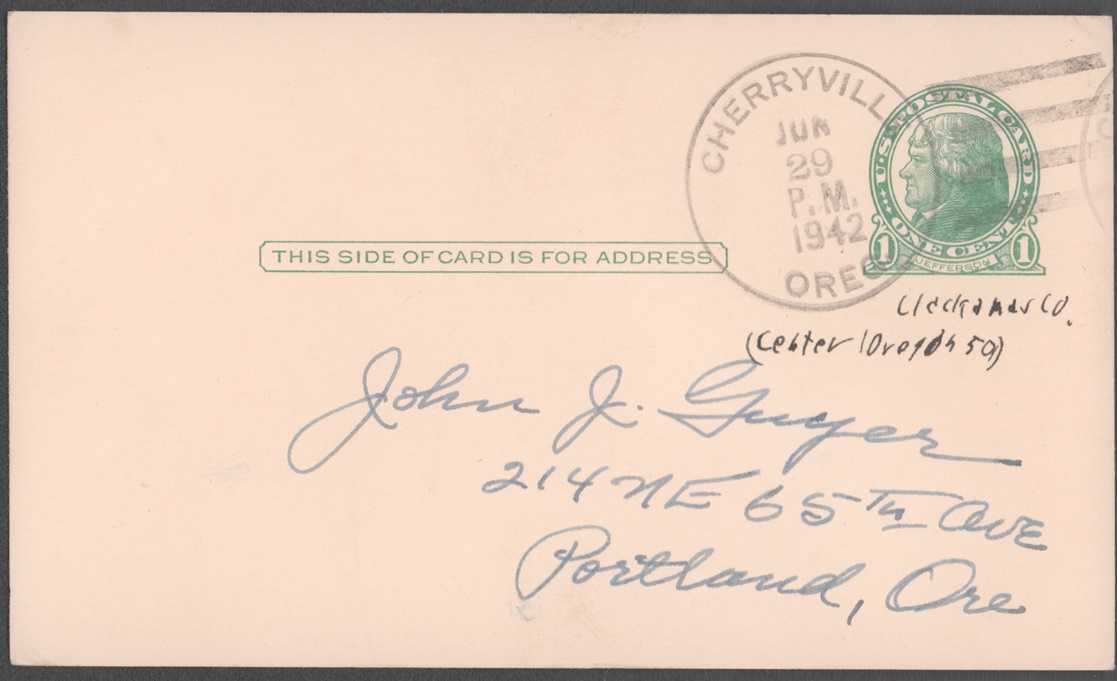 CHERRYVILL
JUN
29
P.M.
1942
OREG
U·S·POSTAL CARD
ONE CENT
1 JEFFERSON 1
THIS SIDE OF CARD IS FOR ADDRESS
Clackamas Co.
(Center
John J. Guyer
214 NE 65TH AVE
Portland, Ore